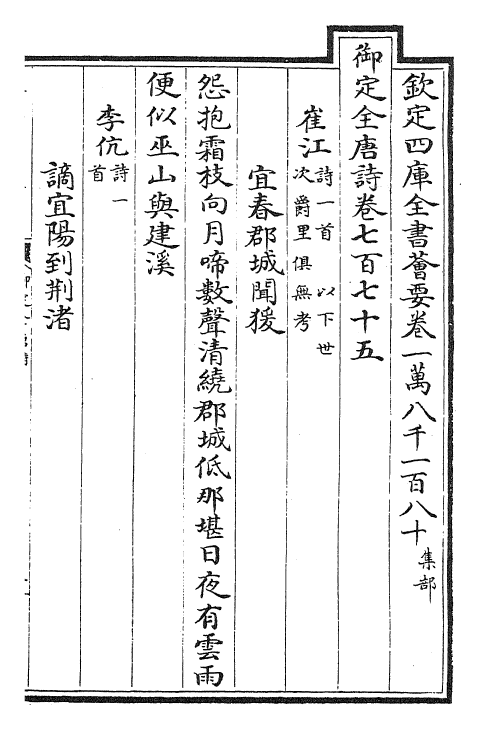 欽定四庫全書薈要卷一萬八千一百八十集部
御定全唐詩卷七百七十五
崔江詩一首以下世次爵里俱無考
宜春郡城聞猨
怨抱霜枝向月啼數聲清繞郡城低那堪日夜有雲雨
便似巫山與建溪
李伉詩一首
謫宜陽到荆渚